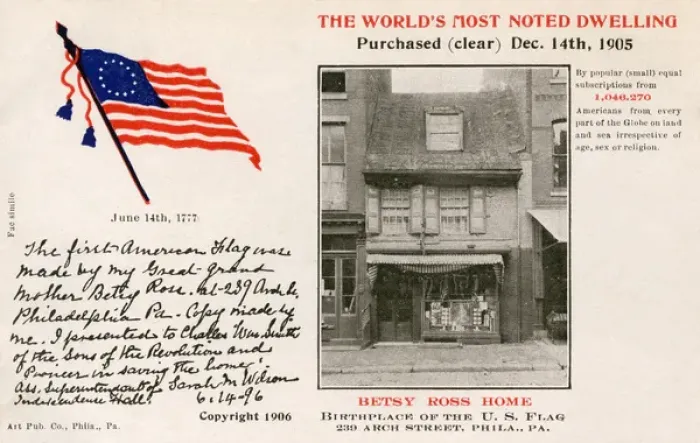 THE WORLD'S MOST NOTED DWELLING
Purchased (clear) Dec. 14th, 1905
By popular (small) equal
subscriptions from
1,046,270
Americans from every
part of the Globe on land
and sea irrespective of
age, sex or religion.
June 14th, 1777
Fac simile
The first American Flag was
made by my Great-grand
mother Betsy Ross. at-239 Arch St,
Philadelphia Pa- Copy made by
me. I presented to Charles Wm. Smith
of the Sons of the Revolution and
Pioneer in saving the home.
Ass. Superintendent of Sarah M Wilson
Independence Hall. 6-14-96
Copyright 1906
Art Pub. Co., Phila., Pa.
BETSY ROSS HOME
BIRTHPLACE OF THE U. S. FLAG
239 ARCH STREET, PHILA., PA.